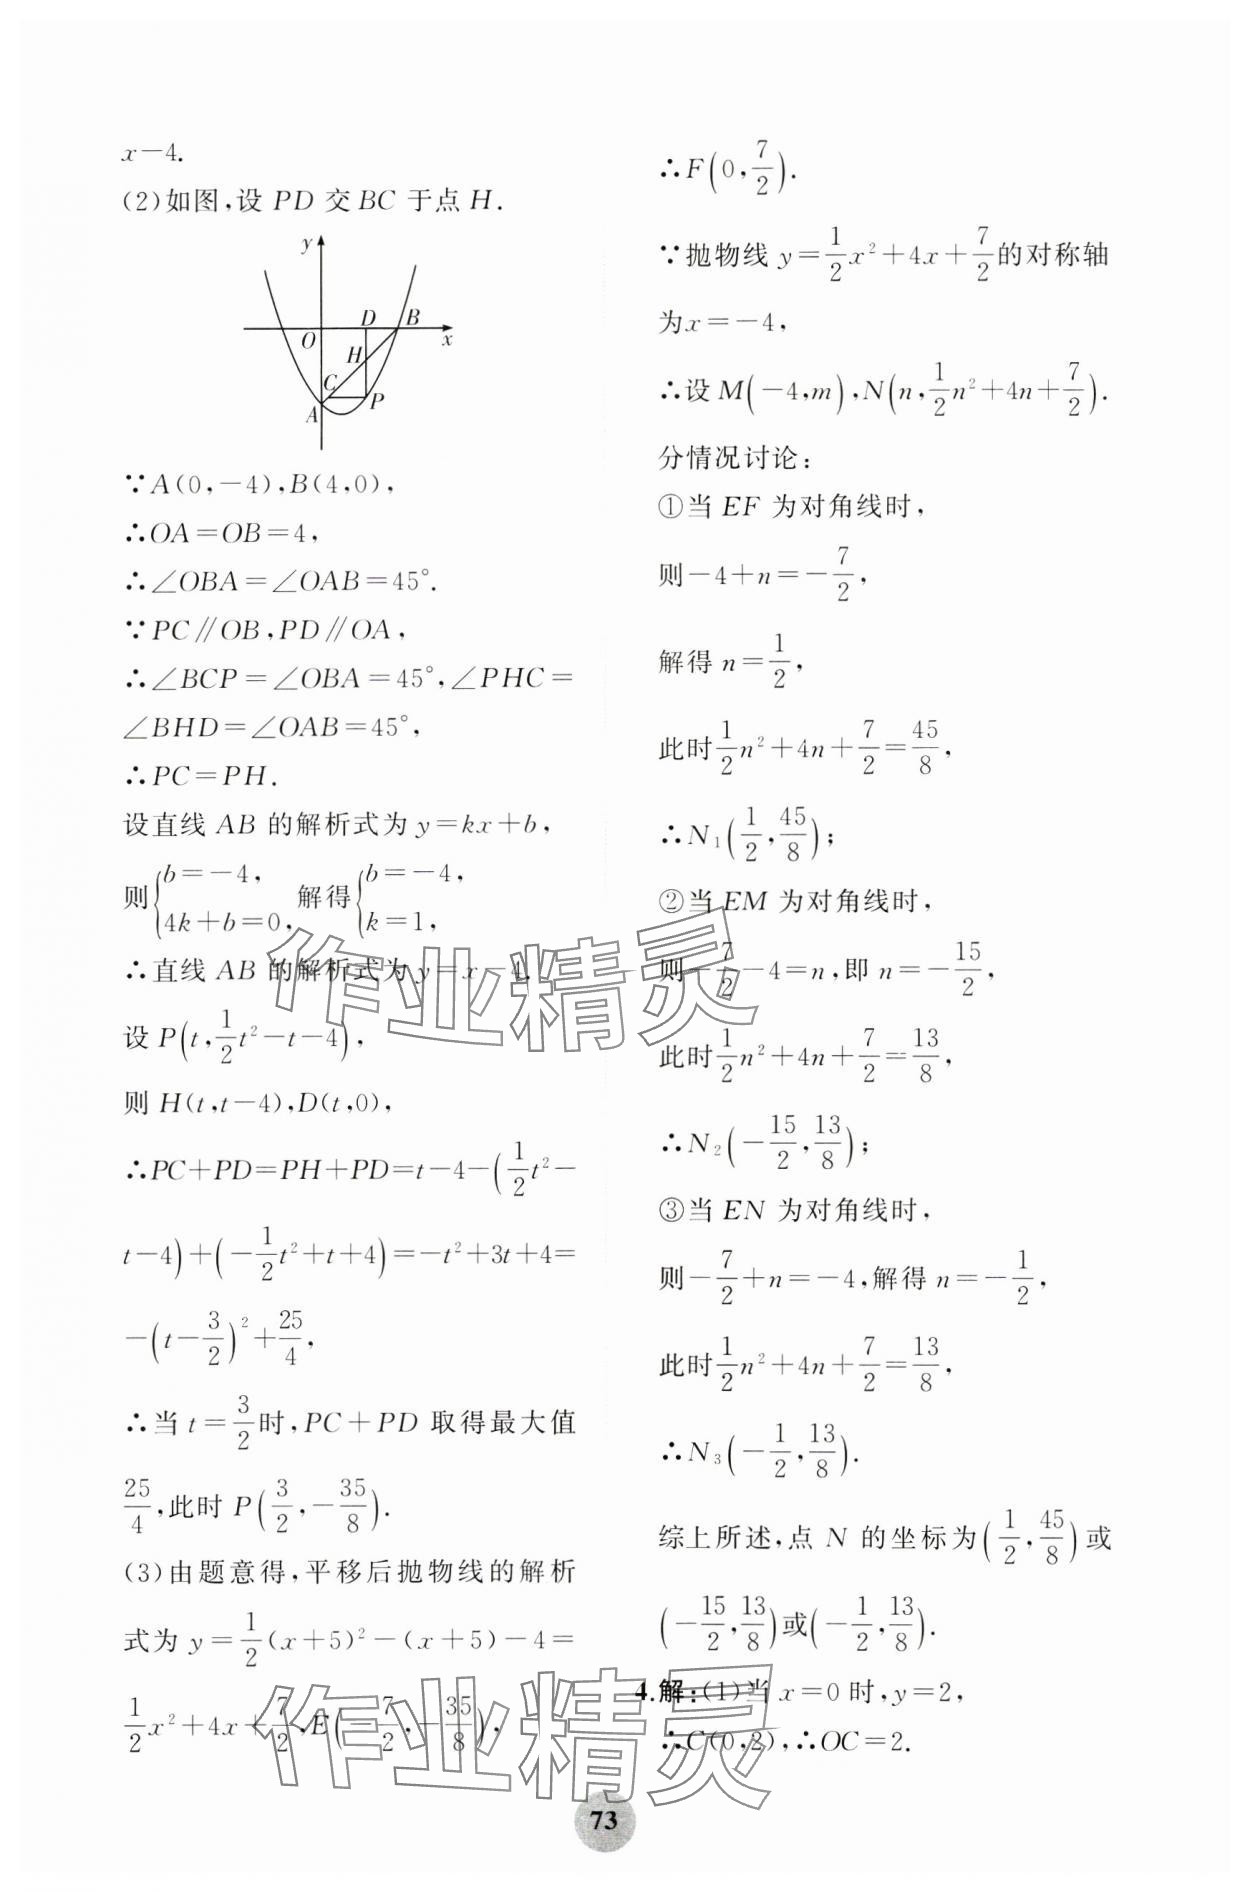 x－4.
(2)如图,设 PD 交 BC 于点 H.
y
D
B
O
x
H
C
P
A
∵A(0,－4),B(4,0),
∴OA＝OB＝4,
∴∠OBA＝∠OAB＝45°.
∵PC∥OB,PD∥OA,
∴∠BCP＝∠OBA＝45°,∠PHC＝
∠BHD＝∠OAB＝45°,
∴PC＝PH.
设直线 AB 的解析式为 y＝kx＋b,
则{b＝－4, 4k＋b＝0, 解得{b＝－4, k＝1,
∴直线 AB 的解析式为 y＝x－4.
设 P(t,1/2t²－t－4),
则 H(t,t－4),D(t,0),
∴PC＋PD＝PH＋PD＝t－4－(1/2t²－
t－4)＋(－1/2t²＋t＋4)＝－t²＋3t＋4＝
－(t－3/2)²＋25/4,
∴当 t＝3/2时,PC＋PD 取得最大值
25/4,此时 P(3/2,－35/8).
(3)由题意得,平移后抛物线的解析
式为 y＝1/2(x＋5)²－(x＋5)－4＝
1/2x²＋4x＋7/2,E(－7/2,－35/8),
∴F(0,7/2).
∵抛物线 y＝1/2x²＋4x＋7/2的对称轴
为x＝－4,
∴设 M(－4,m),N(n,1/2n²＋4n＋7/2).
分情况讨论:
①当 EF 为对角线时,
则－4＋n＝－7/2,
解得 n＝1/2,
此时1/2n²＋4n＋7/2＝45/8,
∴N₁(1/2,45/8);
②当 EM 为对角线时,
则－7/2－4＝n,即 n＝－15/2,
此时1/2n²＋4n＋7/2＝13/8,
∴N₂(－15/2,13/8);
③当 EN 为对角线时,
则－7/2＋n＝－4,解得 n＝－1/2,
此时1/2n²＋4n＋7/2＝13/8,
∴N₃(－1/2,13/8).
综上所述,点 N 的坐标为(1/2,45/8)或
(－15/2,13/8)或(－1/2,13/8).
4.解:(1)当 x＝0 时,y＝2,
∴C(0,2),∴OC＝2.
作业精灵
作业精灵
73